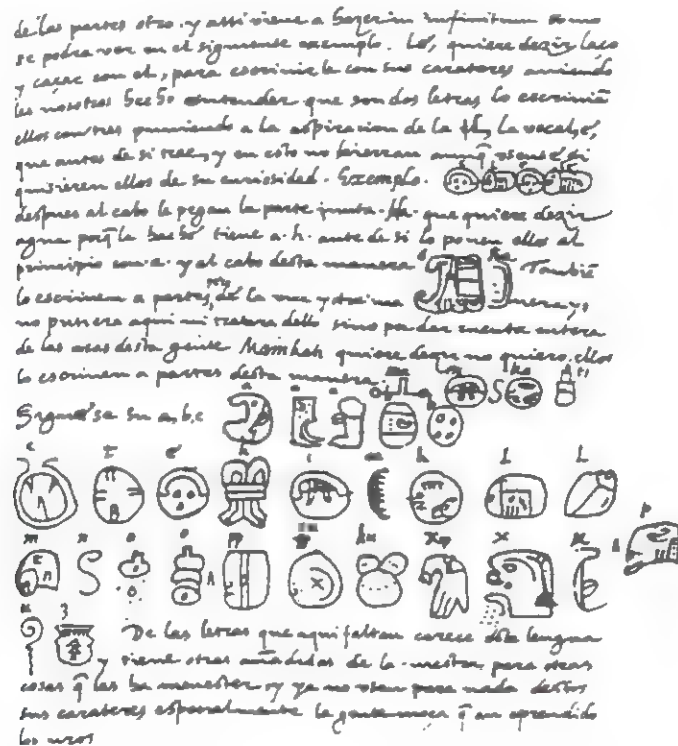 de las partes otro. y assi viene a hazer in infinitum como
se podra ver en el siguiente exemplo. Le, quiere dezir laço
y caçar con el, para escrivirle con sus carateres aviendo
les nosotros hecho entender que son dos letras lo escrivian
ellos con tres puniendo a la aspiracion de la l, la vocal, e,
que antes de si trae, y en esto no hierran aunq̃ usense, si
quisieren ellos de su curiosidad. Exemplo. e l e le
despues al cabo le pegan la parte junta. Ha. que quiere dezir
agua porq̃ la hache tiene a. h. ante de si lo ponen ellos al
principio con a. y al cabo desta manera ha Tambiē
lo escriven a partes, de la una y otra ma nera, yo
no pusiera aqui ni tratara dello sino por dar cuenta entera
de las cosas desta gente Mainkati quiere dezir no quiero, ellos
lo escriven a partes desta manera. ma i n ka ti
Siguese su a, b, c a a a b b
c t e h i ca k l l
m n o o pp p cu ku x x u
u z De las letras que aqui faltan carece esta lengua
y tiene otras añadidas de la nuestra para otras
cosas q̃ las ha menester, y ya no usan para nada destos
sus carateres especialmente la gente moça q̃ an aprendido
los nros